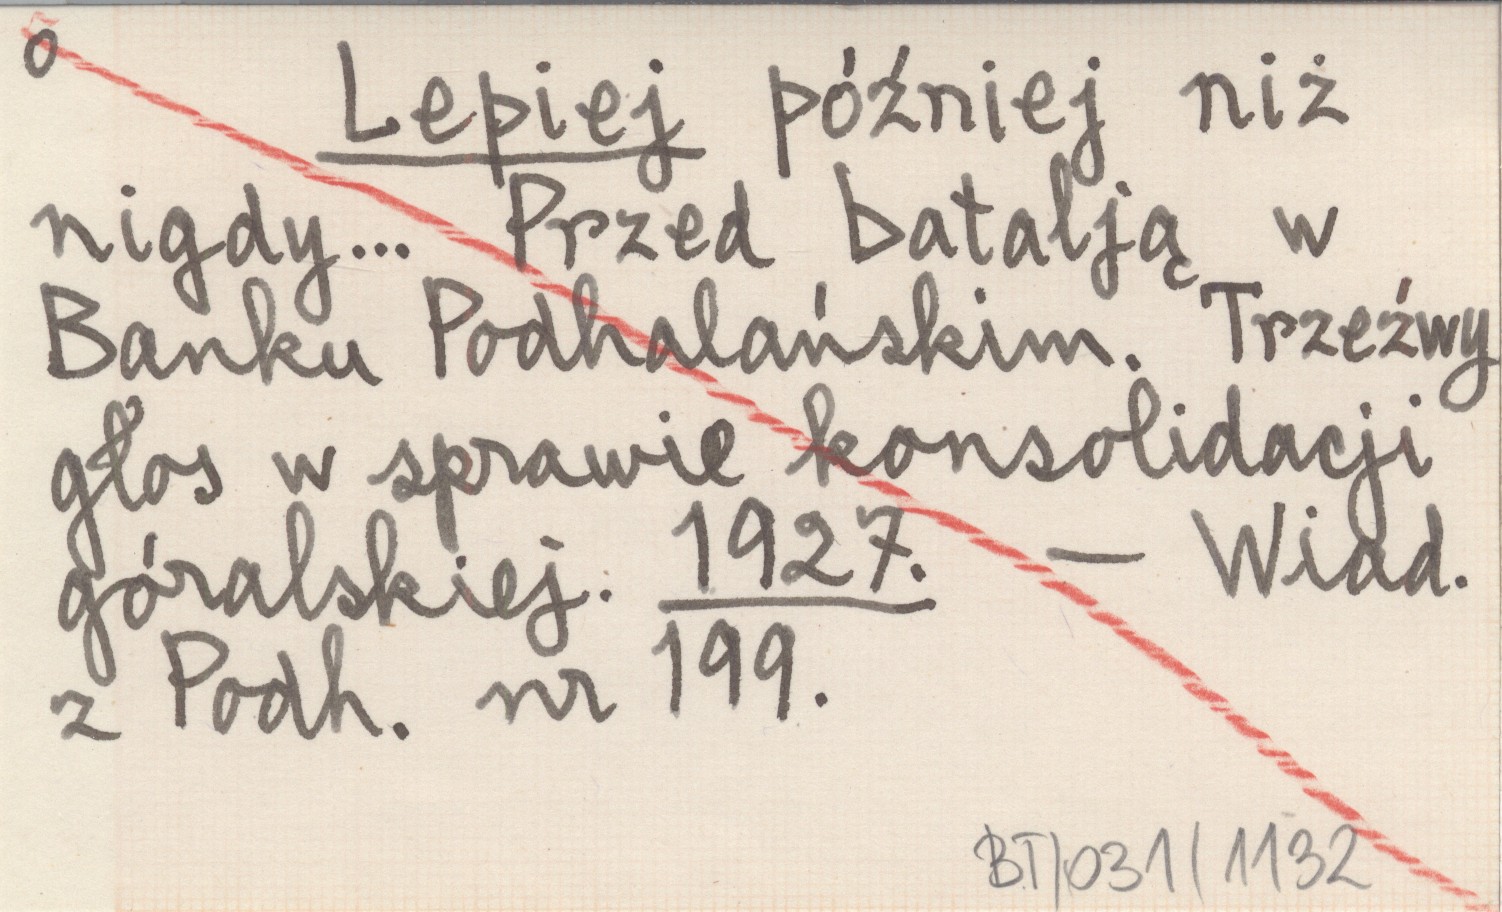 o
Lepiej później niż
nigdy... Przed batalją w
Banku Podhalańskim. Trzeźwy
głos w sprawie konsolidacji
góralskiej. 1927. — Wiad.
z Podh. nr 199.
BT/031/1132